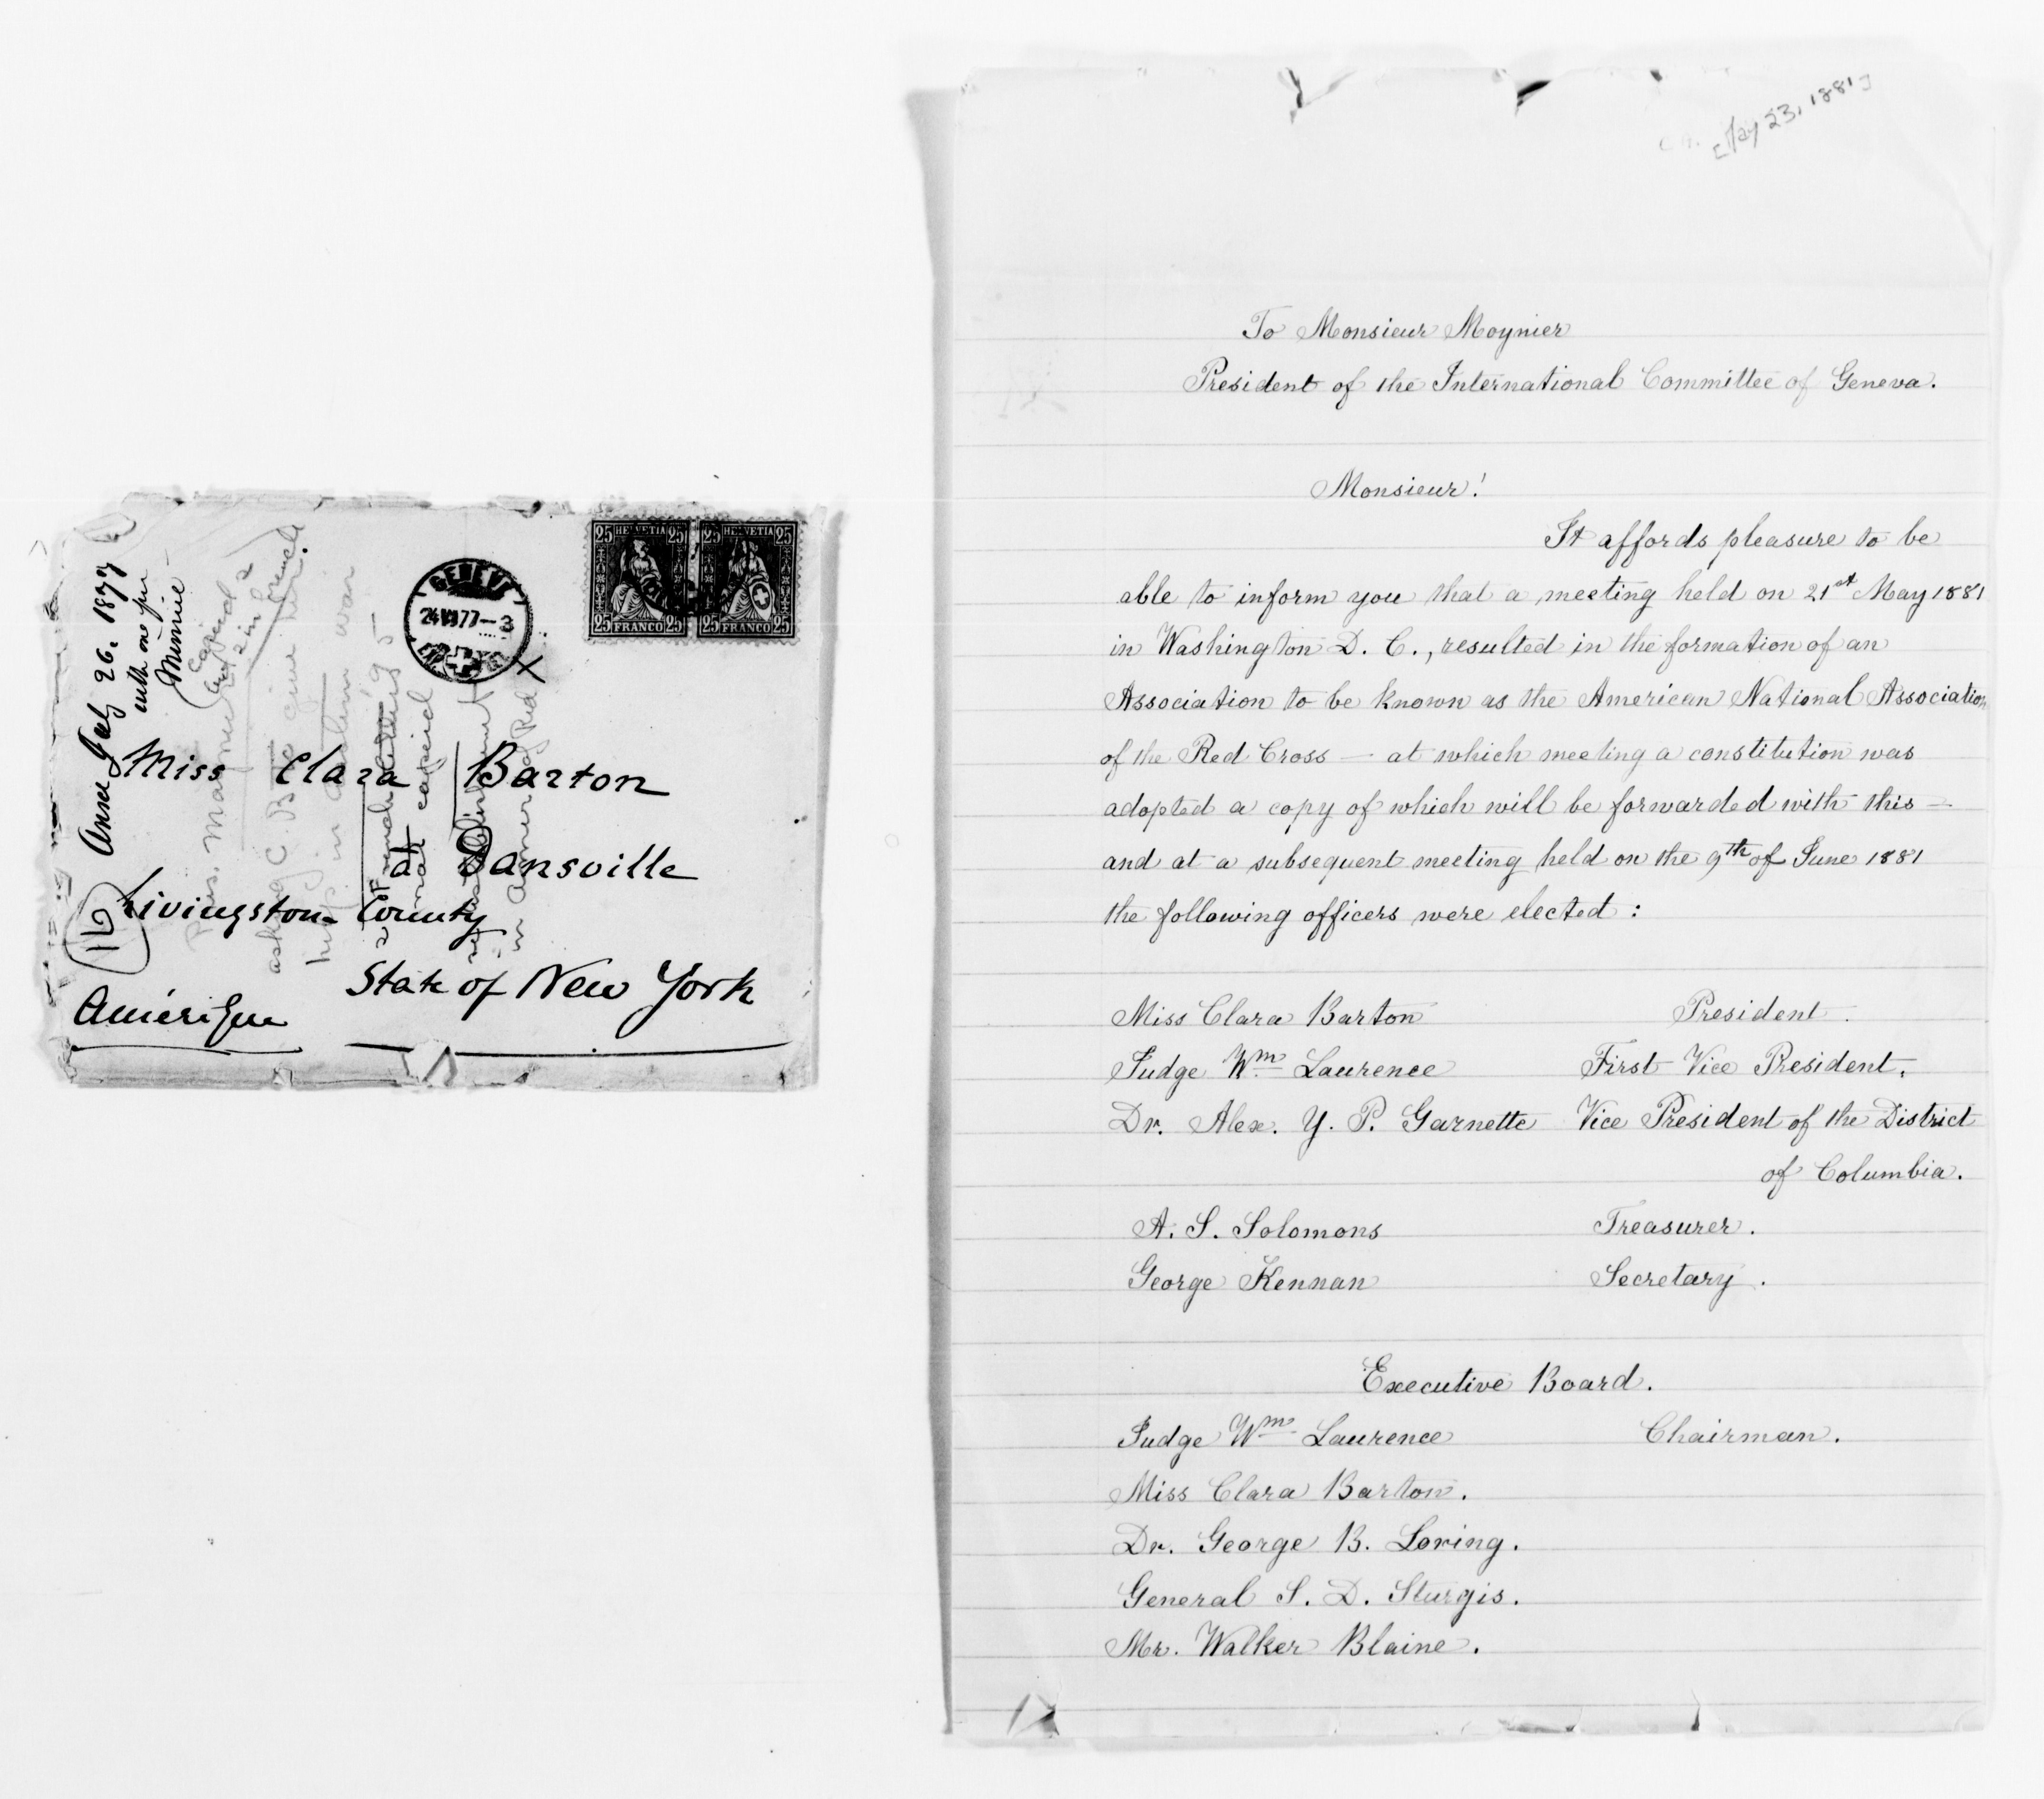 Miss Clara Barton
at Dansville
Livingston County
State of New York
Amérique
GENÈVE
24 VII 77 — 3
X
25 HELVETIA 25
25 FRANCO 25
25 HELVETIA 25
25 FRANCO 25
Answ July 26. 1877
with one from
Minnie
Copied
2 in French
16
[May 23, 1881]
To Monsieur Moynier
President of the International Committee of Geneva.
Monsieur!
It affords pleasure to be
able to inform you that a meeting held on 21st May 1881
in Washington D. C., resulted in the formation of an
Association to be known as the American National Association
of the Red Cross — at which meeting a constitution was
adopted a copy of which will be forwarded with this —
and at a subsequent meeting held on the 9th of June 1881
the following officers were elected :
Miss Clara Barton President.
Judge Wm Laurence First Vice President.
Dr. Alex. Y. P. Garnette Vice President of the District
of Columbia.
A. S. Solomons Treasurer.
George Kennan Secretary.
Executive Board.
Judge Wm Laurence Chairman.
Miss Clara Barton.
Dr. George B. Loring.
General S. D. Sturgis.
Mr. Walker Blaine.